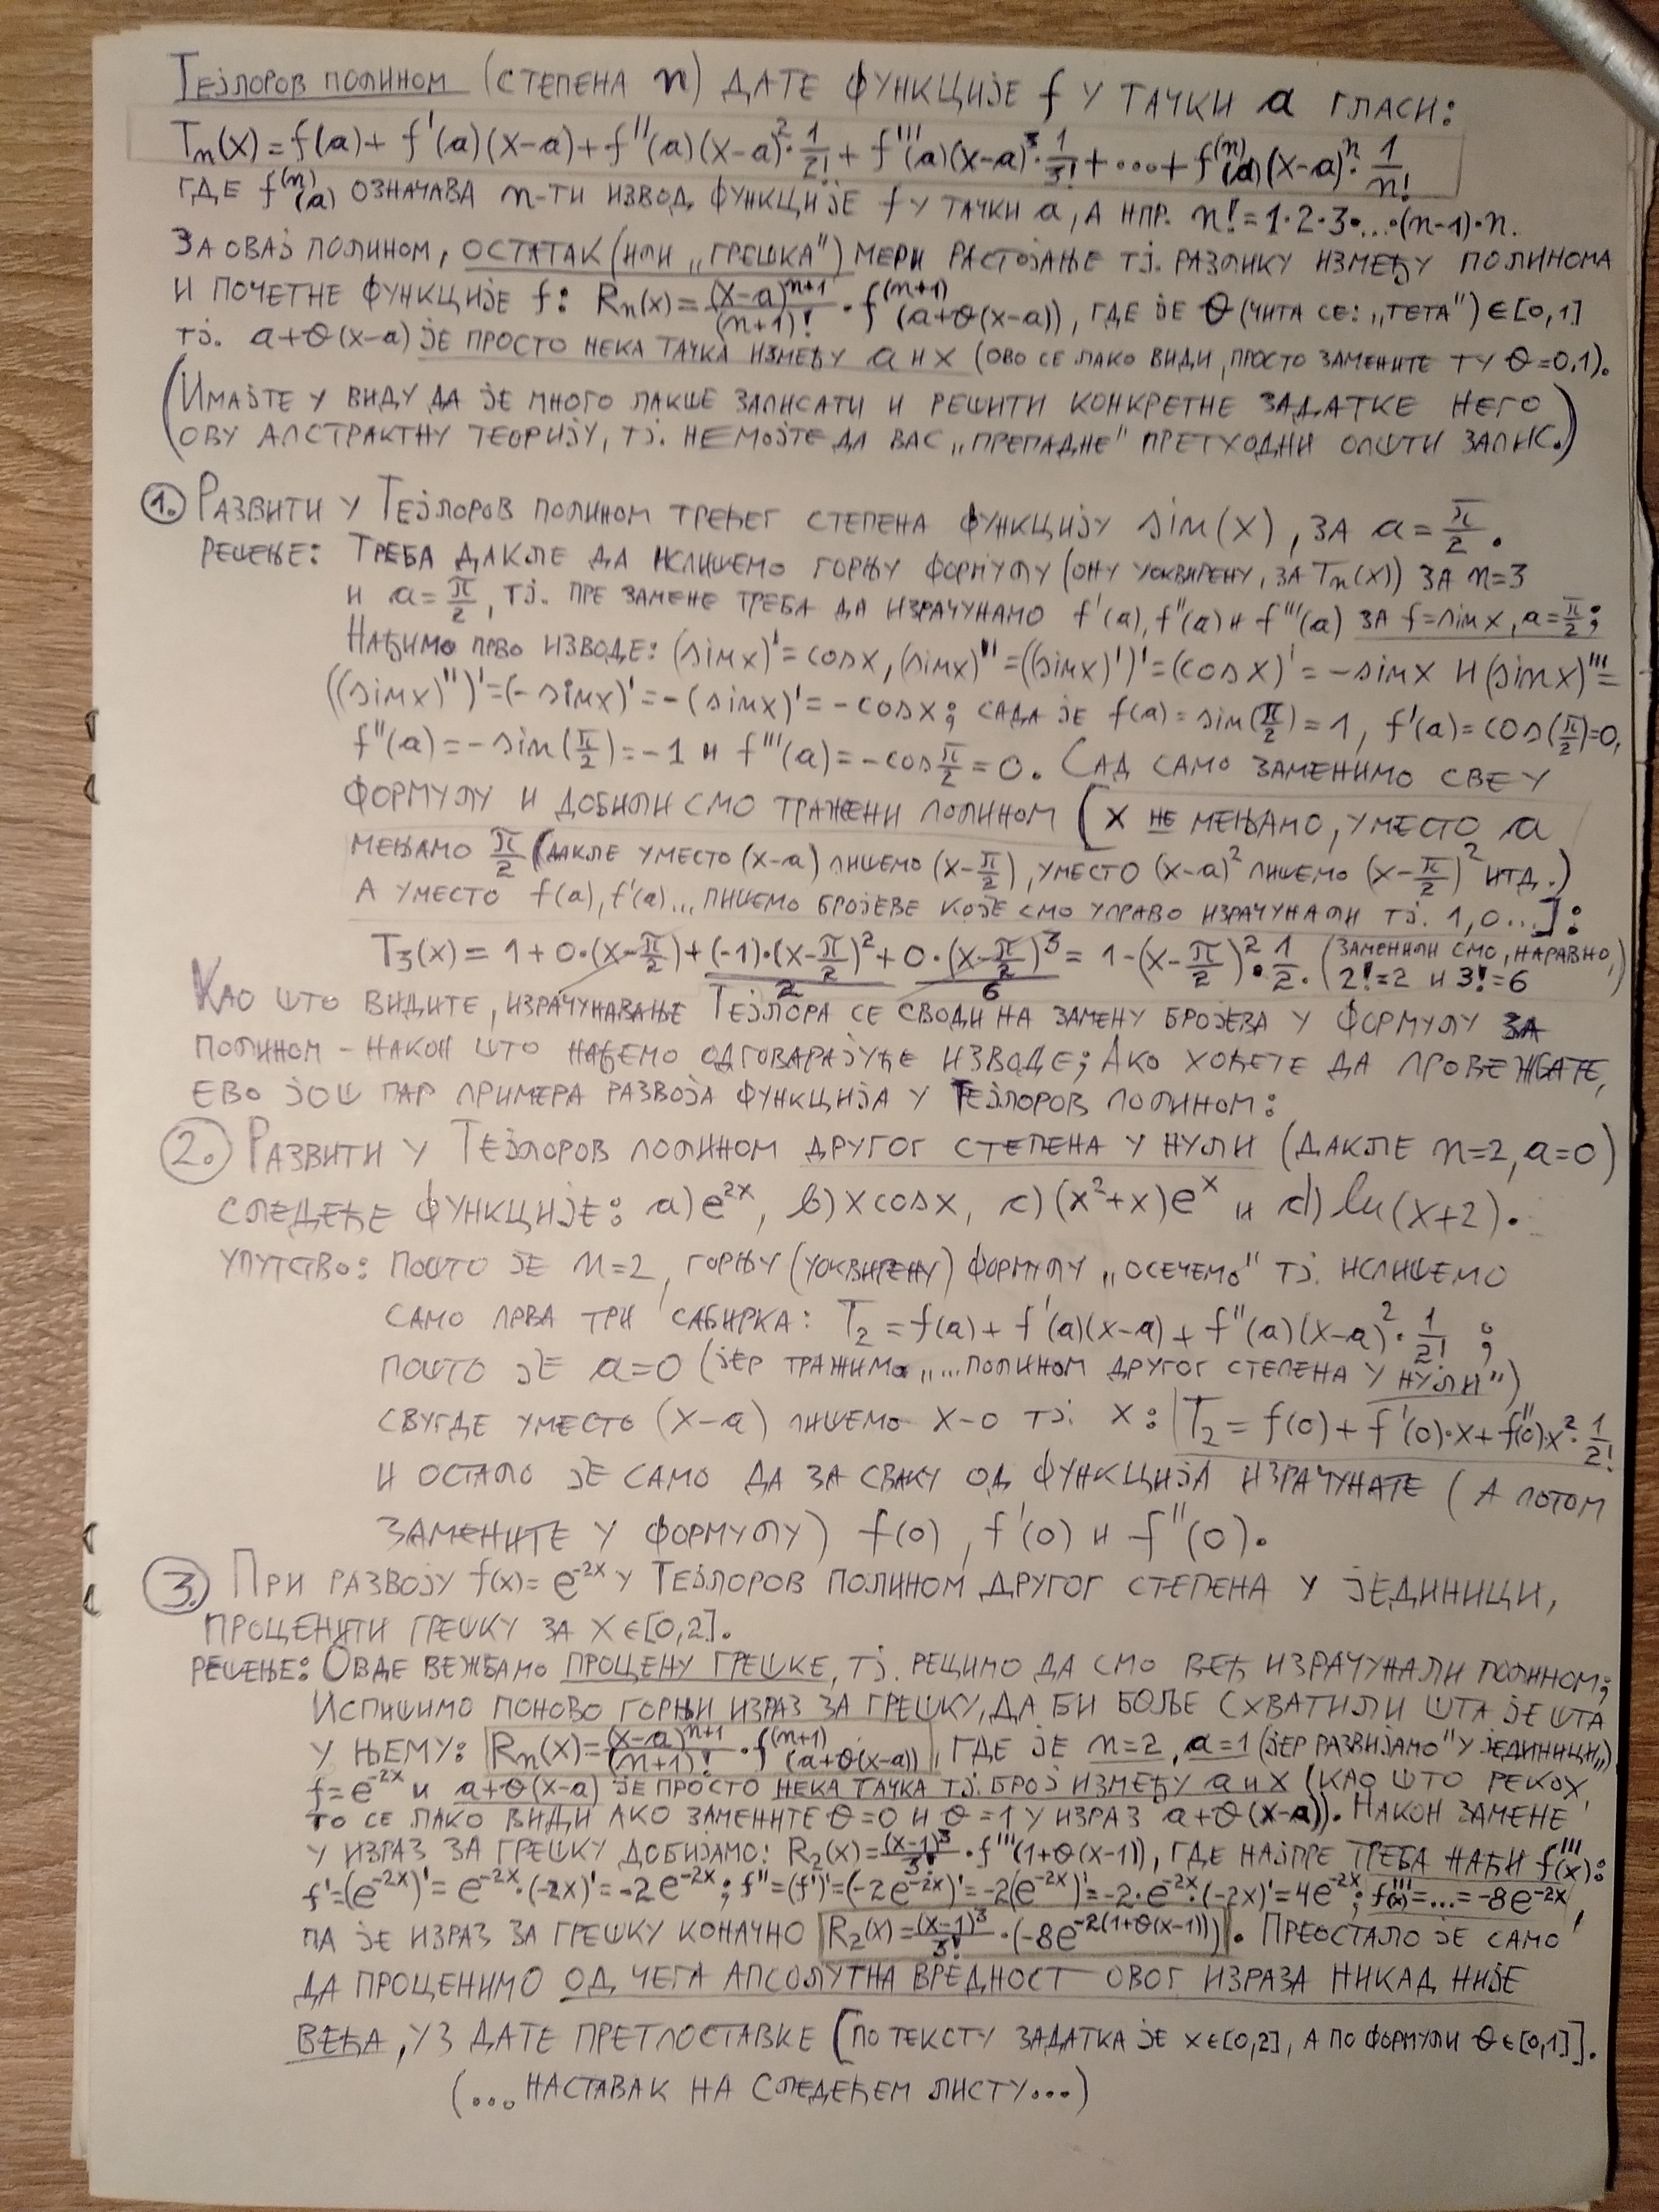 Тејлоров полином (степена n) дате функције f у тачки a гласи:
Tn(x)=f(a)+f'(a)(x-a)+f''(a)(x-a)²·1/2!+f'''(a)(x-a)³·1/3!+...+f⁽ⁿ⁾(a)(x-a)ⁿ·1/n!
где f⁽ⁿ⁾(a) означава n-ти извод функције f у тачки a, а нпр. n!=1·2·3·...·(n-1)·n.
За овај полином, остатак (или „грешка") мери растојање тј. разлику између полинома
и почетне функције f: Rn(x)=(x-a)ⁿ⁺¹/(n+1)!·f⁽ⁿ⁺¹⁾(a+θ(x-a)), где је θ (чита се: „тета")∈[0,1]
тј. a+θ(x-a) је просто нека тачка између a и x (ово се лако види, просто замените ту θ=0,1).
(Имајте у виду да је много лакше записати и решити конкретне задатке него
ову апстрактну теорију, тј. немојте да вас „препадне" претходни општи запис.)
1. Развити у Тејлоров полином трећег степена функцију sin(x), за a=π/2.
Решење: Треба дакле да испишемо горњу формулу (ону уоквирену, за Tn(x)) за n=3
и a=π/2, тј. пре замене треба да израчунамо f'(a), f''(a) и f'''(a) за f=sinx, a=π/2;
Нађимо прво изводе: (sinx)'=cosx, (sinx)''=((sinx)')'=(cosx)'=-sinx и (sinx)'''=
((sinx)'')'=(-sinx)'=-(sinx)'=-cosx; сада је f(a)=sin(π/2)=1, f'(a)=cos(π/2)=0,
f''(a)=-sin(π/2)=-1 и f'''(a)=-cosπ/2=0. Сад само заменимо све у
формулу и добили смо тражени полином [x не мењамо, уместо a
мењамо π/2 (дакле уместо (x-a) пишемо (x-π/2), уместо (x-a)² пишемо (x-π/2)² итд.)
а уместо f(a), f'(a)... пишемо бројеве које смо управо израчунали тј. 1,0...]:
T3(x)=1+0·(x-π/2)+(-1)·(x-π/2)²/2+0·(x-π/2)³/6=1-(x-π/2)²·1/2. (заменили смо, наравно,
2!=2 и 3!=6)
Као што видите, израчунавање Тејлора се своди на замену бројева у формулу за
полином - након што нађемо одговарајуће изводе; Ако хоћете да провежбате,
ево још пар примера развоја функција у Тејлоров полином:
2. Развити у Тејлоров полином другог степена у нули (дакле n=2, a=0)
следеће функције: a) e²ˣ, b) x cosx, c) (x²+x)eˣ и d) ln(x+2).
Упутство: Пошто је n=2, горњу (уоквирену) формулу „осечемо" тј. испишемо
само прва три сабирка: T2=f(a)+f'(a)(x-a)+f''(a)(x-a)²·1/2! ;
пошто је a=0 (јер тражимо „...полином другог степена у нули")
свугде уместо (x-a) пишемо x-0 тј. x: T2=f(0)+f'(0)·x+f''(0)·x²·1/2!
и остало је само да за сваку од функција израчунате (а потом
замените у формулу) f(0), f'(0) и f''(0).
3. При развоју f(x)=e⁻²ˣ у Тејлоров полином другог степена у јединици,
проценити грешку за x∈[0,2].
Решење: Овде вежбамо процену грешке, тј. рецимо да смо већ израчунали полином;
Испишимо поново горњи израз за грешку, да би боље схватили шта је шта
у њему: Rn(x)=(x-a)ⁿ⁺¹/(n+1)!·f⁽ⁿ⁺¹⁾(a+θ(x-a)), где је n=2, a=1 (јер развијамо "у јединици„)
f=e⁻²ˣ и a+θ(x-a) је просто нека тачка тј. број између a и x (као што рекох,
то се лако види ако замените θ=0 и θ=1 у израз a+θ(x-a)). Након замене
у израз за грешку добијамо: R2(x)=(x-1)³/3!·f'''(1+θ(x-1)), где најпре треба наћи f'''(x):
f'=(e⁻²ˣ)'=e⁻²ˣ·(-2x)'=-2e⁻²ˣ; f''=(f')'=(-2e⁻²ˣ)'=-2(e⁻²ˣ)'=-2·e⁻²ˣ·(-2x)'=4e⁻²ˣ; f'''(x)=...=-8e⁻²ˣ,
па је израз за грешку коначно R2(x)=(x-1)³/3!·(-8e^(-2(1+θ(x-1)))). Преостало је само
да проценимо од чега апсолутна вредност овог израза никад није
већа, уз дате претпоставке [по тексту задатка је x∈[0,2], а по формули θ∈[0,1]].
(...наставак на следећем листу...)